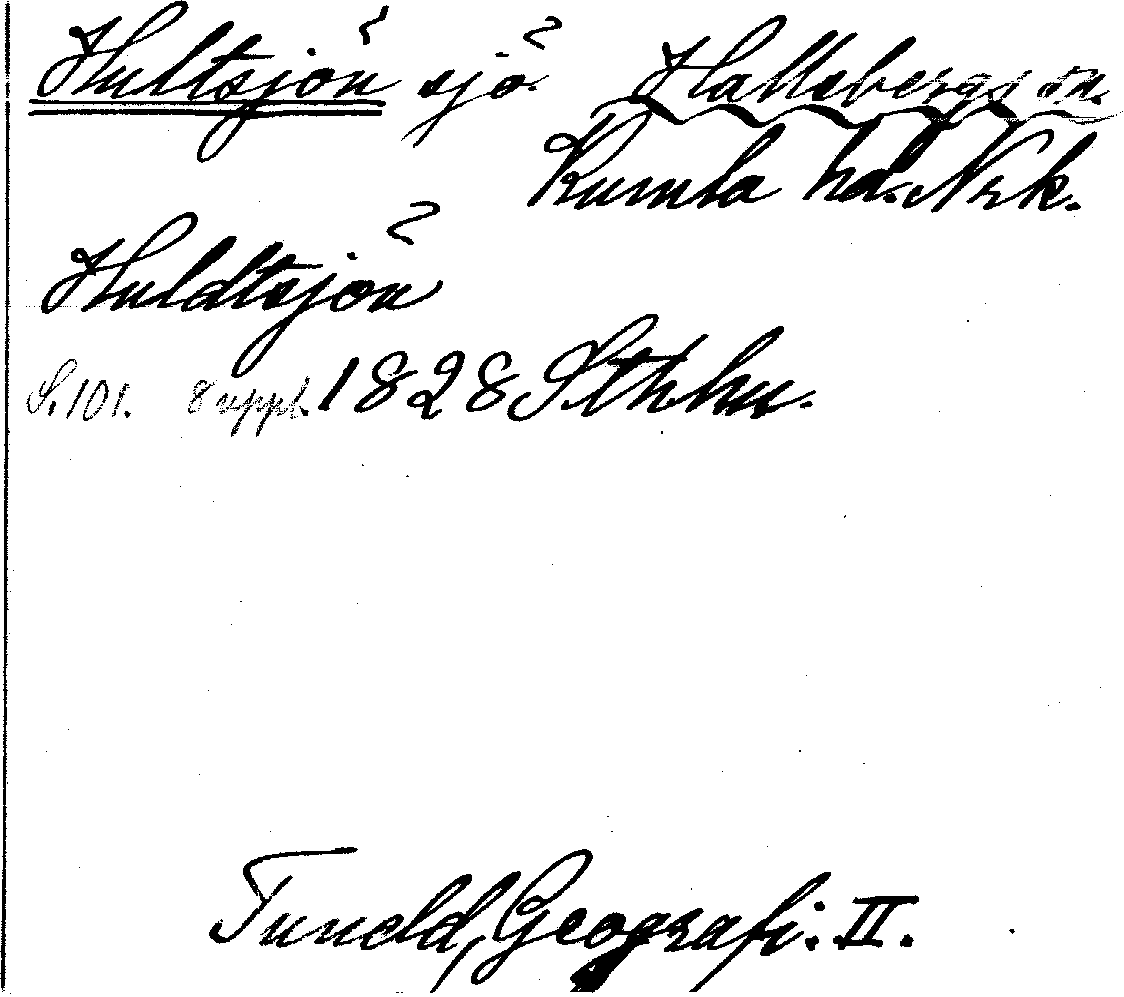 Hultsjön sjö Hallsbergs sn.
Kumla hd. Nrk.
Huldtsjön
S. 101. 8 uppl. 1828 Sthlm.
Tuneld, Geografi. II.